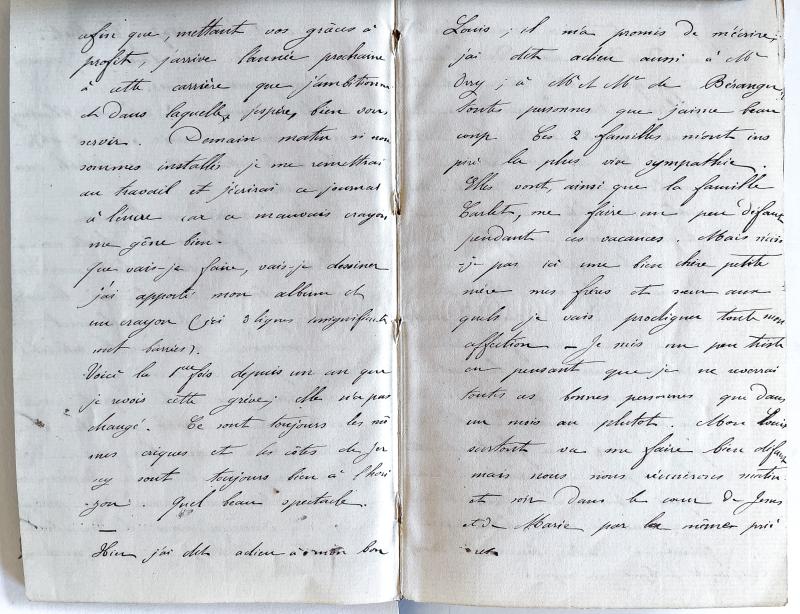 afin que, mettant vos grâces à
profit, j'arrive l'année prochaine
à cette carrière que j'ambitionne
et dans laquelle j'espère bien vous
servir. Demain matin si nous
sommes installés je me remettrai
au travail et j'écrirai ce journal
à l'encre car ce mauvais crayon
me gêne bien.
Que vais-je faire, vais-je dessiner
j'ai apporté mon album et
un crayon (ici 3 lignes insignifiantes
sont barrées).
Voici la 1ère fois depuis un an que
je revois cette grève; elle n'a pas
changé. Ce sont toujours les mê
mes criques et les côtes de Jer
sey sont toujours bien à l'hori
zon. Quel beau spectacle.
—
Hier j'ai dit adieu à mon bon
Louis; il m'a promis de m'écrire,
j'ai dit adieu aussi à Mr
; à Mr et Me de Béranger,
toutes personnes que j'aime beau
coup. Ces 2 familles m'ont ins
piré la plus vive sympathie.
Elles vont, ainsi que la famille
Carlet, me faire un peu défaut
pendant ces vacances. Mais n'ai
-je pas ici une bien chère petite
mère mes frères et sœur aux
quels je vais prodiguer toute mon
affection — Je suis un peu triste
en pensant que je ne reverrai
toutes ces bonnes personnes que dans
un mois au plutôt. Mon Louis
surtout va me faire bien défaut
mais nous nous réunirons matin
et soir dans le cœur de Jésus
et de Marie par les mêmes priè
res